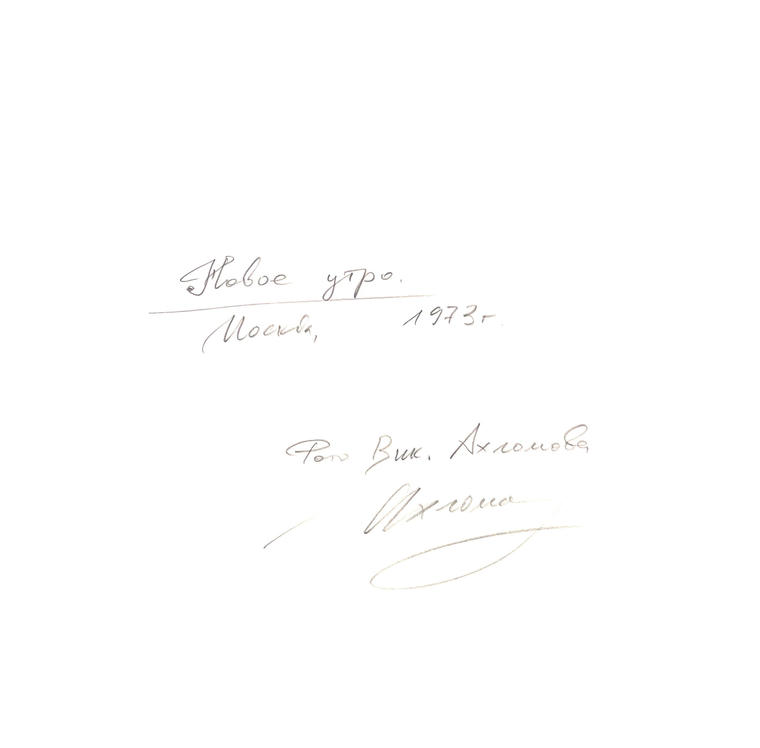 Новое утро.
Москва, 1973г.
Фото Вик. Ахломова
Ахлома